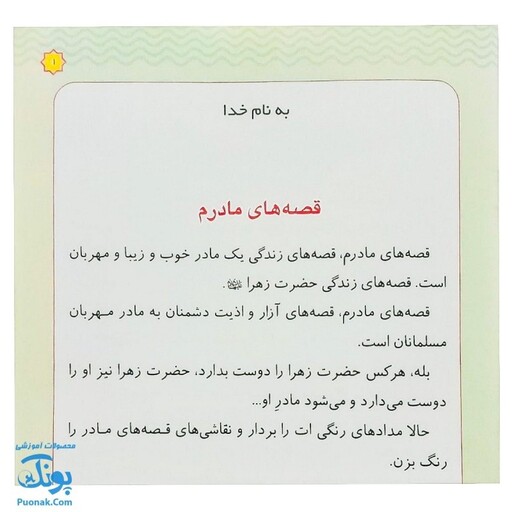 ۱
به نام خدا
قصه‌های مادرم
قصه‌های مادرم، قصه‌های زندگی یک مادر خوب و زیبا و مهربان
است. قصه‌های زندگی حضرت زهرا علیها‌السلام.
قصه‌های مادرم، قصه‌های آزار و اذیت دشمنان به مادر مهربان
مسلمانان است.
بله، هرکس حضرت زهرا را دوست بدارد، حضرت زهرا نیز او را
دوست می‌دارد و می‌شود مادرِ او...
حالا مدادهای رنگی ات را بردار و نقاشی‌های قصه‌های مادر را
رنگ بزن.
محصولات آموزشی
پونک
Puonak.Com